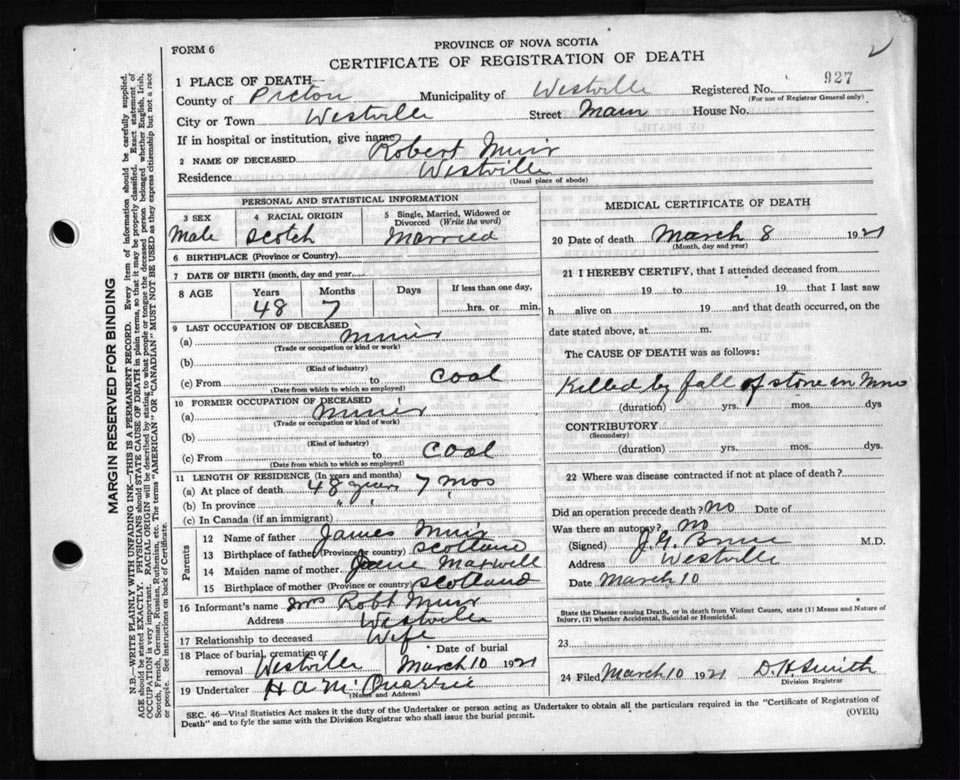 FORM 6
PROVINCE OF NOVA SCOTIA
CERTIFICATE OF REGISTRATION OF DEATH
927
1 PLACE OF DEATH—
County of Pictou Municipality of Westville Registered No.
(For use of Registrar General only)
City or Town Westville Street Main House No.
If in hospital or institution, give name
2 NAME OF DECEASED Robert Muir
Residence Westville
(Usual place of abode)
PERSONAL AND STATISTICAL INFORMATION
3 SEX 4 RACIAL ORIGIN 5 Single, Married, Widowed or Divorced (Write the word)
Male Scotch Married
6 BIRTHPLACE (Province or Country)
7 DATE OF BIRTH (month, day and year)
8 AGE Years Months Days If less than one day,
48 7 hrs. or min.
9 LAST OCCUPATION OF DECEASED
(a) Miner
(Trade or occupation or kind or work)
(b)
(Kind of industry)
(c) From to Coal
(Date from which to which so employed)
10 FORMER OCCUPATION OF DECEASED
(a) Miner
(Trade or occupation or kind or work)
(b)
(Kind of industry)
(c) From to Coal
(Date from which to which so employed)
11 LENGTH OF RESIDENCE (In years and months)
(a) At place of death 48 years 7 mos
(b) In province " "
(c) In Canada (if an immigrant)
Parents
12 Name of father James Muir
13 Birthplace of father (Province or country) Scotland
14 Maiden name of mother Jane Maxwell
15 Birthplace of mother (Province or country) Scotland
16 Informant's name Mrs Robt Muir
Address Westville
17 Relationship to deceased Wife
18 Place of burial, cremation or removal Westville Date of burial March 10 1921
19 Undertaker H A McQuarrie
(Name and Address)
MEDICAL CERTIFICATE OF DEATH
20 Date of death March 8 1921
(Month, day and year)
21 I HEREBY CERTIFY, that I attended deceased from
19 to 19 that I last saw
h alive on 19 and that death occurred, on the
date stated above, at m.
The CAUSE OF DEATH was as follows:
Killed by fall of stone in Mine
(duration) yrs. mos. dys
CONTRIBUTORY
(Secondary)
(duration) yrs. mos. dys.
22 Where was disease contracted if not at place of death?
Did an operation precede death? No Date of
Was there an autopsy? No
(Signed) M.D.
Address Westville
Date March 10
State the Disease causing Death, or in death from Violent Causes, state (1) Means and Nature of
Injury, (2) whether Accidental, Suicidal or Homicidal.
23
24 Filed March 10 1921 D. H. Smith
Division Registrar
SEC. 46—Vital Statistics Act makes it the duty of the Undertaker or person acting as Undertaker to obtain all the particulars required in the "Certificate of Registration of
Death" and to fyle the same with the Division Registrar who shall issue the burial permit.
(OVER)
MARGIN RESERVED FOR BINDING
N.B.—WRITE PLAINLY WITH UNFADING INK—THIS IS A PERMANENT RECORD. Every item of information should be carefully supplied.
AGE should be stated EXACTLY. PHYSICIANS should STATE CAUSE OF DEATH in plain terms, so that it may be properly classified. Exact statement of
OCCUPATION is very important. RACIAL ORIGIN will be described by stating to what people or tongue the deceased person belonged, whether English, Irish,
Scotch, French, German, Russian, Ruthenian, etc. The terms "AMERICAN" or "CANADIAN" MUST NOT BE USED as they express citizenship but not a race
or people. See instructions on back of Certificate.